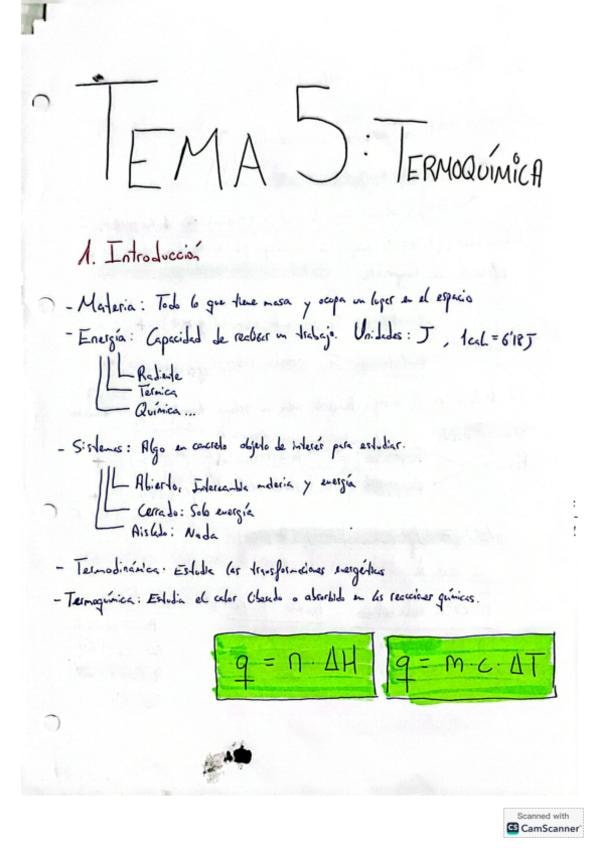 TEMA 5: TERMOQUÍMICA
1. Introducción
- Materia: Todo lo que tiene masa y ocupa un lugar en el espacio
- Energía: Capacidad de realizar un trabajo. Unidades: J, 1cal = 6'18 J
Radiente
Térmica
Química...
- Sistemas: Algo en concreto objeto de interés para estudiar.
Abierto, Intercambia materia y energía
Cerrado: Solo energía
Aislado: Nada
- Termodinámica. Estudia las transformaciones energéticas
- Termoquímica: Estudia el calor liberado o absorbido en las reacciones químicas.
q = n · ΔH
q = m · c · ΔT
Scanned with
CS CamScanner